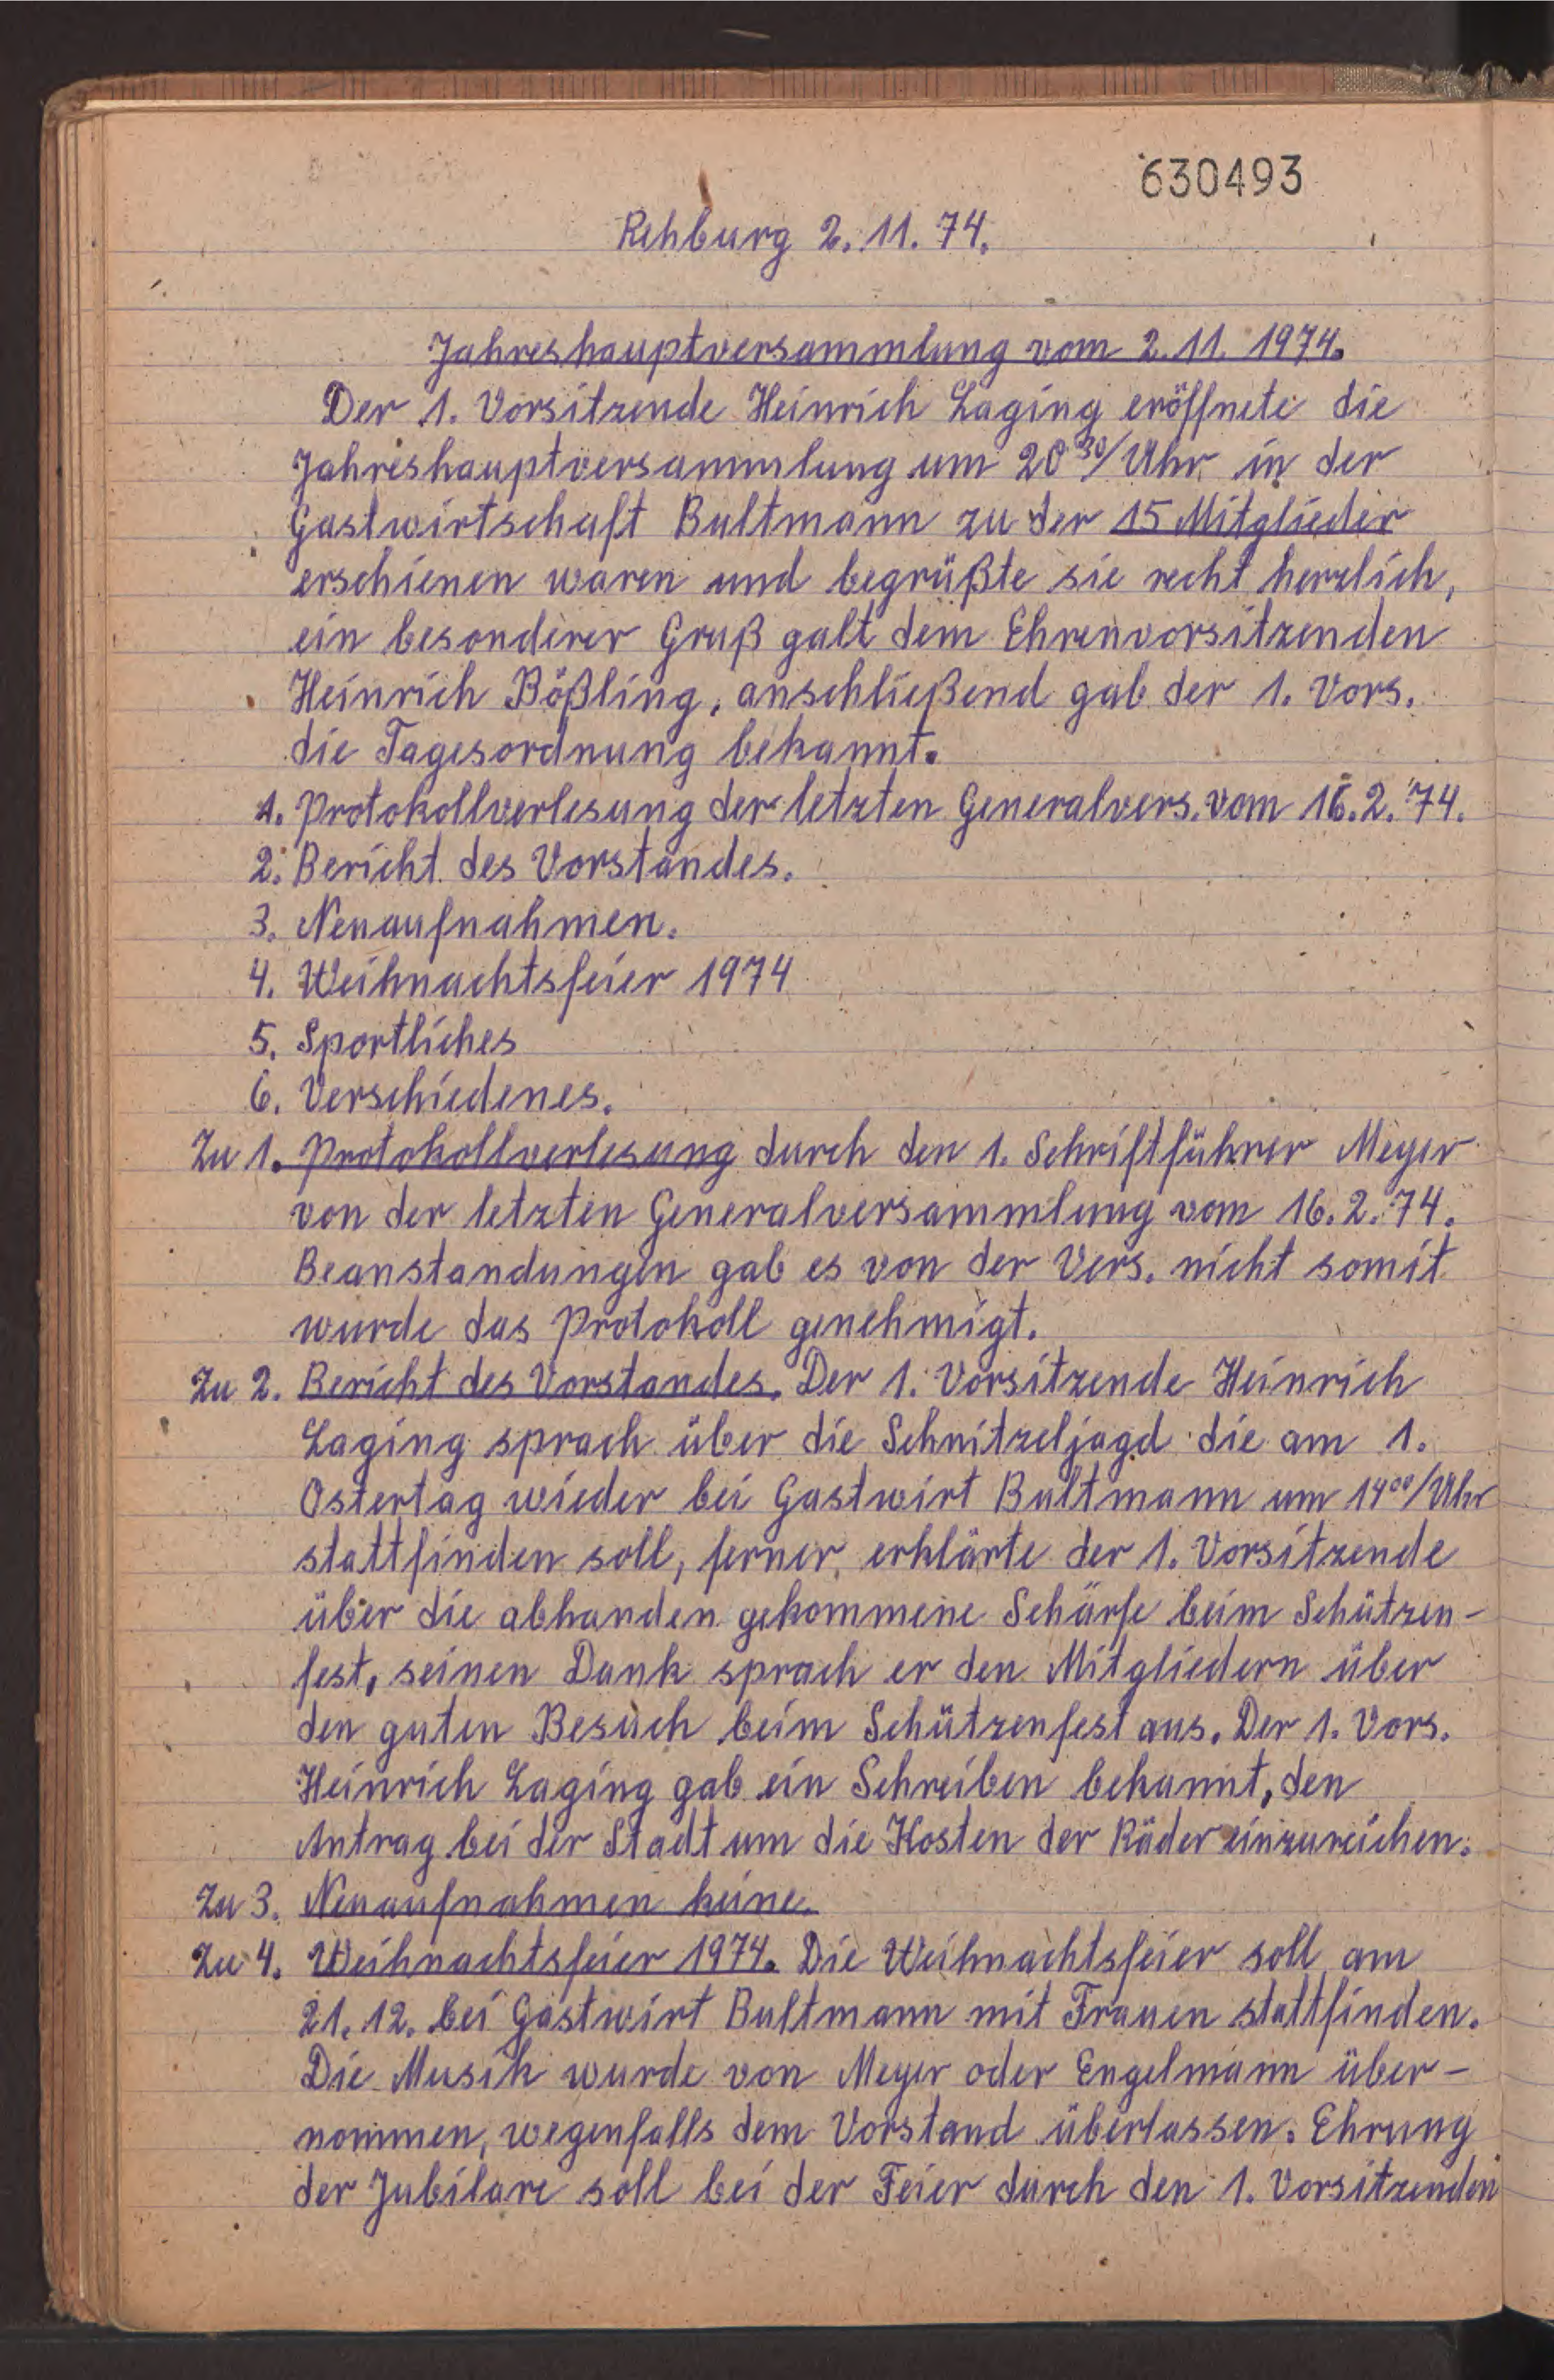 630493
Rehburg 2.11.74.
Jahreshauptversammlung vom 2.11.1974.
Der 1. Vorsitzende Heinrich Laging eröffnete die
Jahreshauptversammlung um 20³⁰/Uhr in der
Gastwirtschaft Bultmann zu der 15 Mitglieder
erschienen waren und begrüßte sie recht herzlich,
ein besonderer Gruß galt dem Ehrenvorsitzenden
Heinrich Bößling, anschließend gab der 1. Vors.
die Tagesordnung bekannt.
1. Protokollverlesung der letzten Generalvers. vom 16.2.74.
2. Bericht des Vorstandes.
3. Neuaufnahmen.
4. Weihnachtsfeier 1974
5. Sportliches
6. Verschiedenes.
Zu 1. Protokollverlesung durch den 1. Schriftführer Meyer
von der letzten Generalversammlung vom 16.2.74.
Beanstandungen gab es von der Vers. nicht somit
wurde das Protokoll genehmigt.
Zu 2. Bericht des Vorstandes. Der 1. Vorsitzende Heinrich
Laging sprach über die Schnitzeljagd die am 1.
Ostertag wieder bei Gastwirt Bultmann um 14⁰⁰/Uhr
stattfinden soll, ferner, erklärte der 1. Vorsitzende
über die abhanden gekommene Schärfe beim Schützen-
fest, seinen Dank sprach er den Mitgliedern über
den guten Besuch beim Schützenfest aus. Der 1. Vors.
Heinrich Laging gab ein Schreiben bekannt, den
Antrag bei der Stadt um die Kosten der Räder einzureichen.
Zu 3. Neuaufnahmen keine.
Zu 4. Weihnachtsfeier 1974. Die Weihnachtsfeier soll am
21.12. bei Gastwirt Bultmann mit Frauen stattfinden.
Die Musik wurde von Meyer oder Engelmann über-
nommen, wegenfalls dem Vorstand überlassen. Ehrung
der Jubilare soll bei der Feier durch den 1. Vorsitzenden